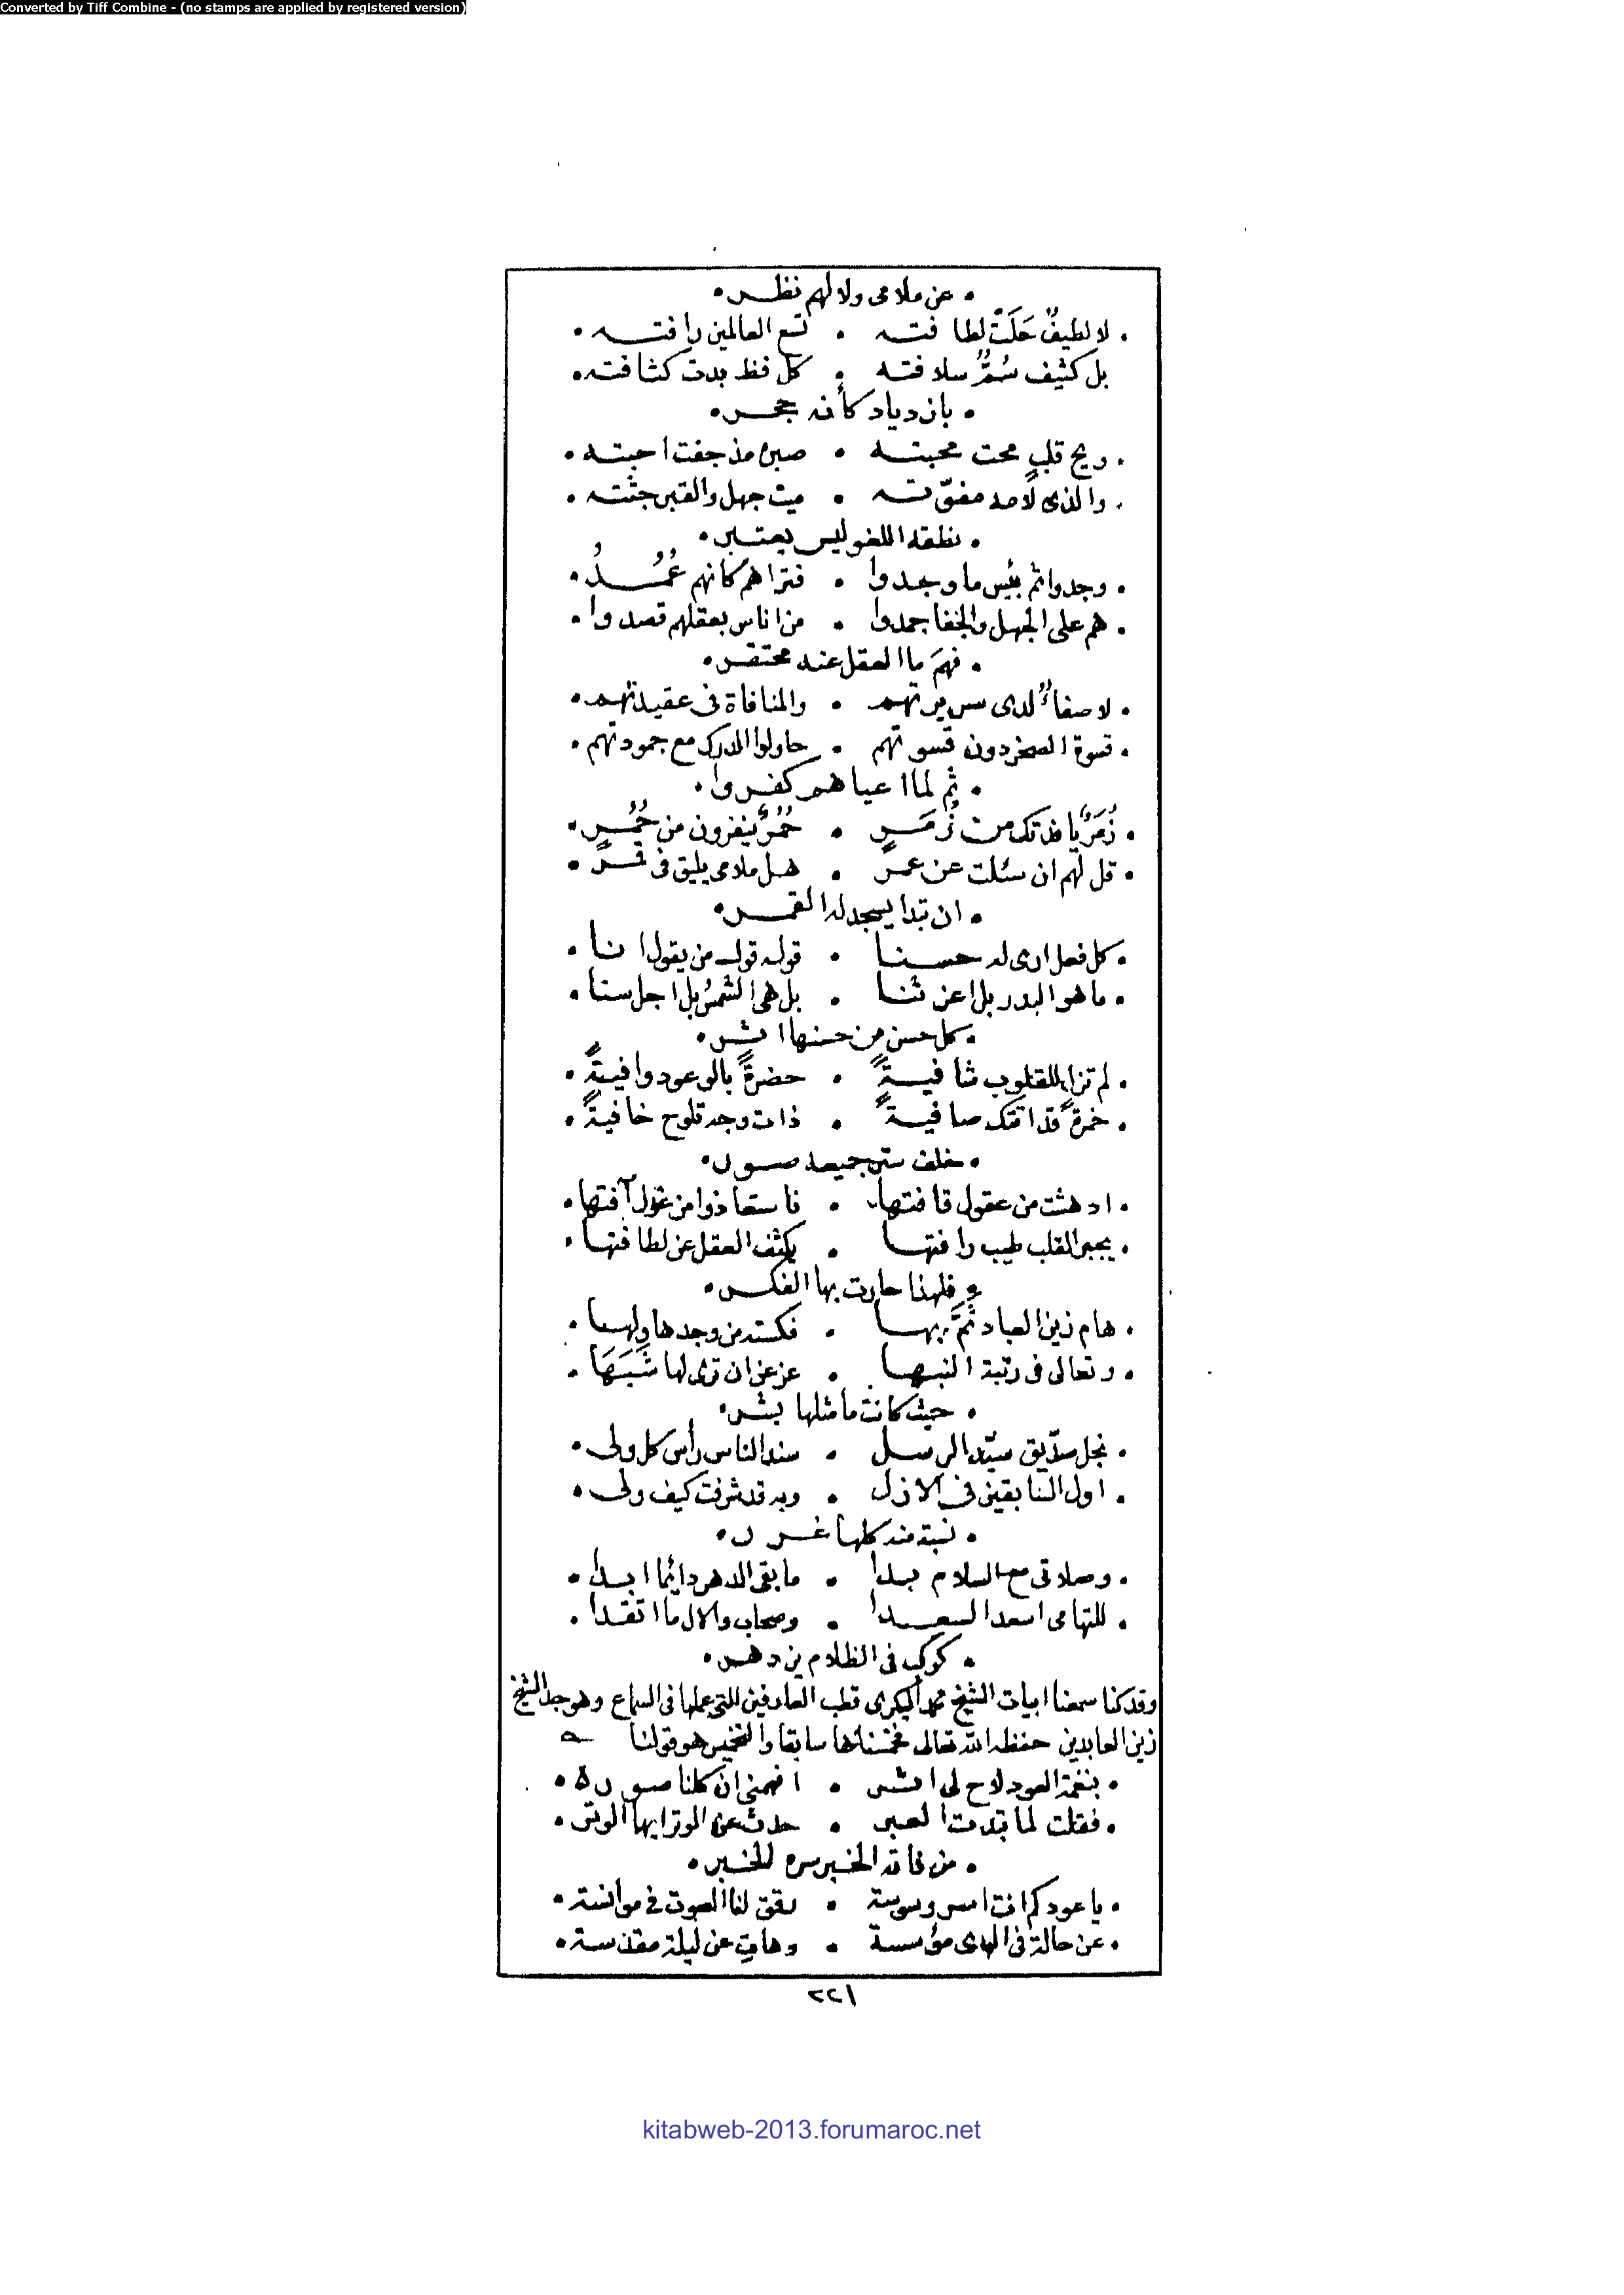 Converted by Tiff Combine - (no stamps are applied by registered version)
• عن ملامى ولا لهم نظر •
• لا لطيفٌ حَلَتْ لطافته • تسع العالمين رافته •
بل كثيف سُمٌّ سلافته • كل فظ بدت كثافته •
• بازدياد كأنه حجر •
• ويح قلبٍ محت محبته • صبره مذ جفت احبته •
• والذى لامه مفوّته • ميت جهل والقبر جثته •
• نطقه اللغو ليس يعتبر •
• وجدوا ثم بئس ما وجدوا • فتراهم كانهم عُمُدُ •
• هم على الجهل والخفا جمدوا • من اناس بعقلهم قصدوا •
• فهمَ ما العقل عنده محتقر •
• لا صفاءٌ لدى سريرتهم • والمنافاة فى عقيدتهم •
• قسوة الصخر دون قسوتهم • حاولوا الدرك مع جمودتهم •
• ثم لما اعياهم كفروا •
• زُمَرٌ يا فدتك من زُمَرٍ • حُمُرٌ ينفرون من حُمُرٍ •
• قل لهم ان سئلت عن عمر • هل ملامى يليق فى قمرٍ •
• ان تبدا يسجد له القمر •
• كل فعل ارى له حسنا • قوله قول من يقول انا •
• ما هو البدر بل اعز ثنا • بل هى الشمسُ بل اجل سنا •
• كل حسن من حسنها اثر •
• لم تزل للقلوب شافيةً • حضرةً بالوعود وافيةً •
• خمرةً قد اتتك صافيةً • ذات وجه تلوح خافيةً •
• خلف ستر جميعه صور •
• ادهشت من عقول قافتها • فاستعاذوا من غول آفتها •
• يجبر القلب طيب رافتها • يكثف العقل عن لطافتها •
• فلهذا حارت بها الفكر •
• هام زين العباد ثَمَّ بها • فكسته من وجدها ولها •
• وتعالى فى رتبة النبها • عز عزان ترى لها شَبَهَا •
• حيث كانت ما مثلها بشر •
• نجل صدّيق سيّد الرسل • سند الناس رأس كل ولى •
• اول السابقين فى الازل • وبه قد شرفت كيف ولى •
• نسبة منه كلها غرر •
• وصلاتى مع السلام بدا • ما بقى الدهر دائما ابدا •
• للتهامى اسعد السعدا • وصحاب والال ما اتقدا •
• كوكب فى الظلام يزدهر •
وقد كنا سمعنا ابيات الشيخ محمد البكرى قطب العارفين التى عملها فى السماع وهو جد الشيخ
زين العابدين حفظه الله تعالى فخمسناها سابقا والتخميس هو قولنا
• بنغمة العود لاح لى اثر • افهمنى ان كلنا صوره •
• فقلت لما تبدت العبر • حدث عن الوتر ايها الوتر •
• من فاته الخبر سره الخبر •
• يا عود كم انت امر وسوسة • رقق لنا الصوت فى موانسة •
• عن حالة فى الهوى مؤسسة • وهات عن ليلة مقدسة •
٢٢١
kitabweb-2013.forumaroc.net